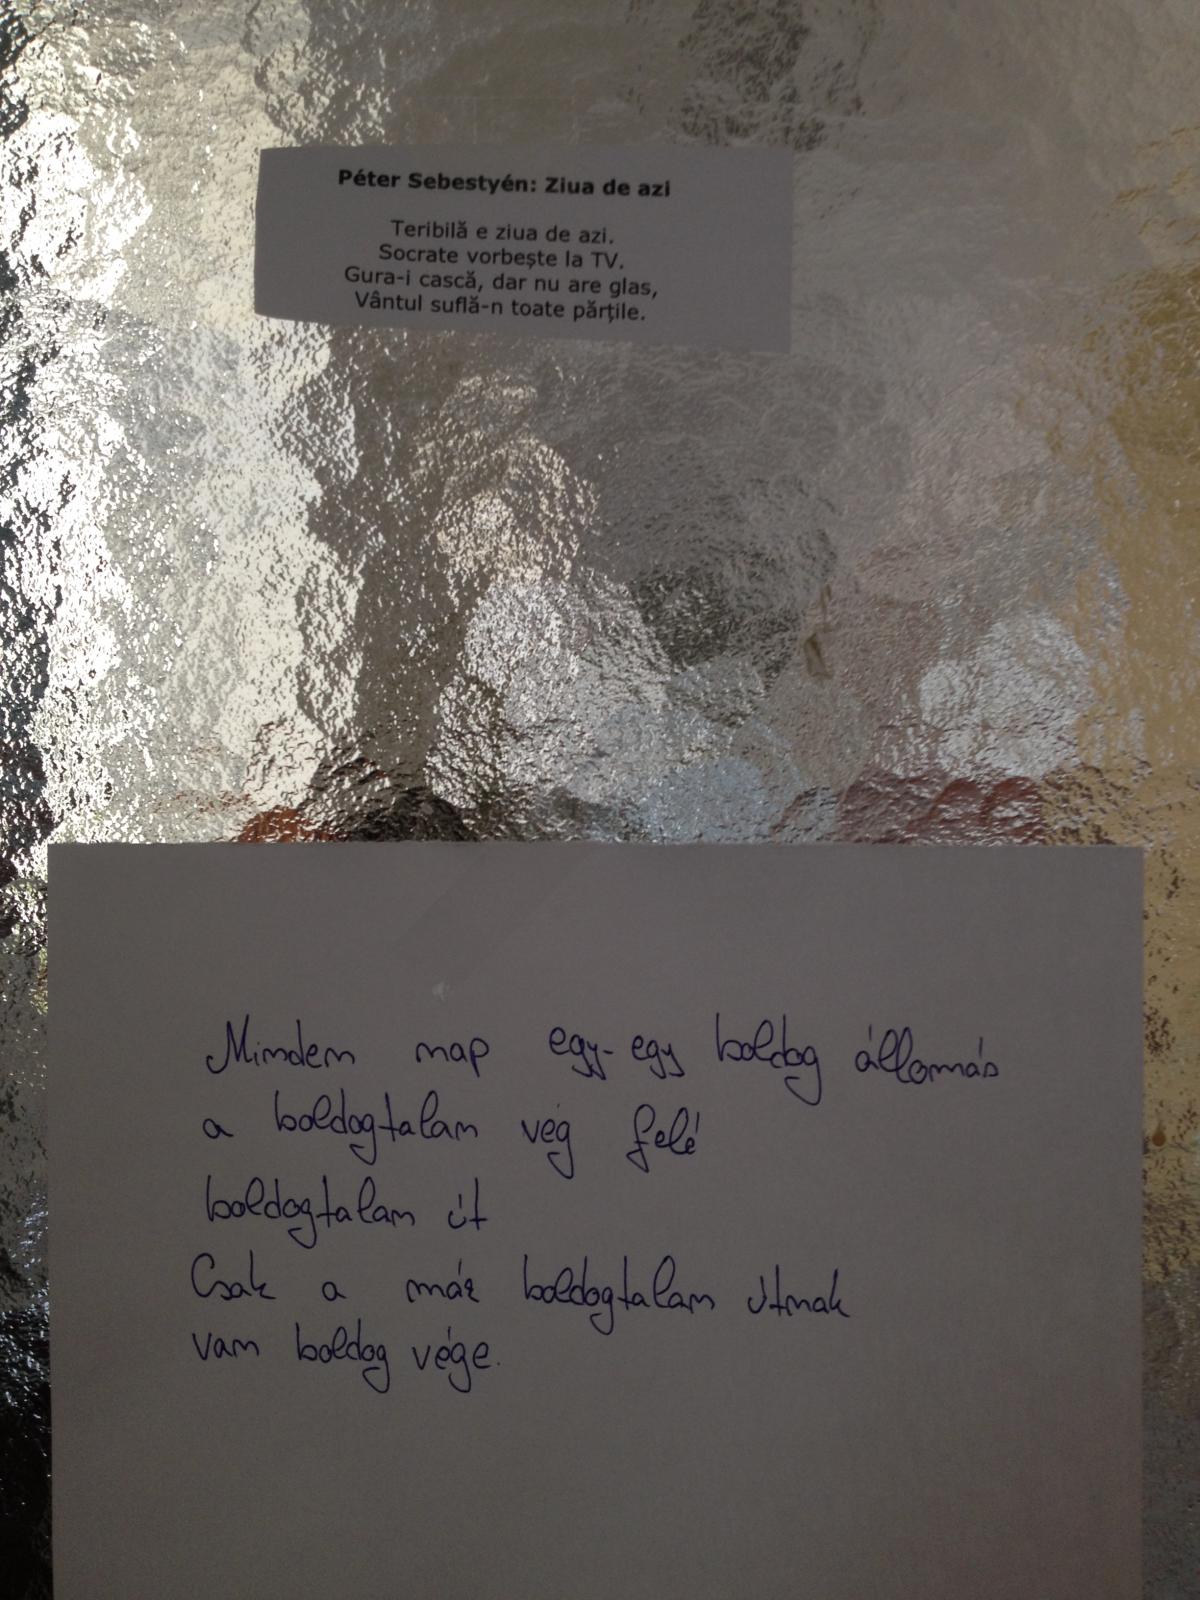 Péter Sebestyén: Ziua de azi
Teribilă e ziua de azi.
Socrate vorbește la TV.
Gura-i cască, dar nu are glas,
Vântul suflă-n toate părțile.
Minden nap egy-egy boldog állomás
a boldogtalan vég felé
boldogtalan út
Csak a már boldogtalan útnak
van boldog vége.